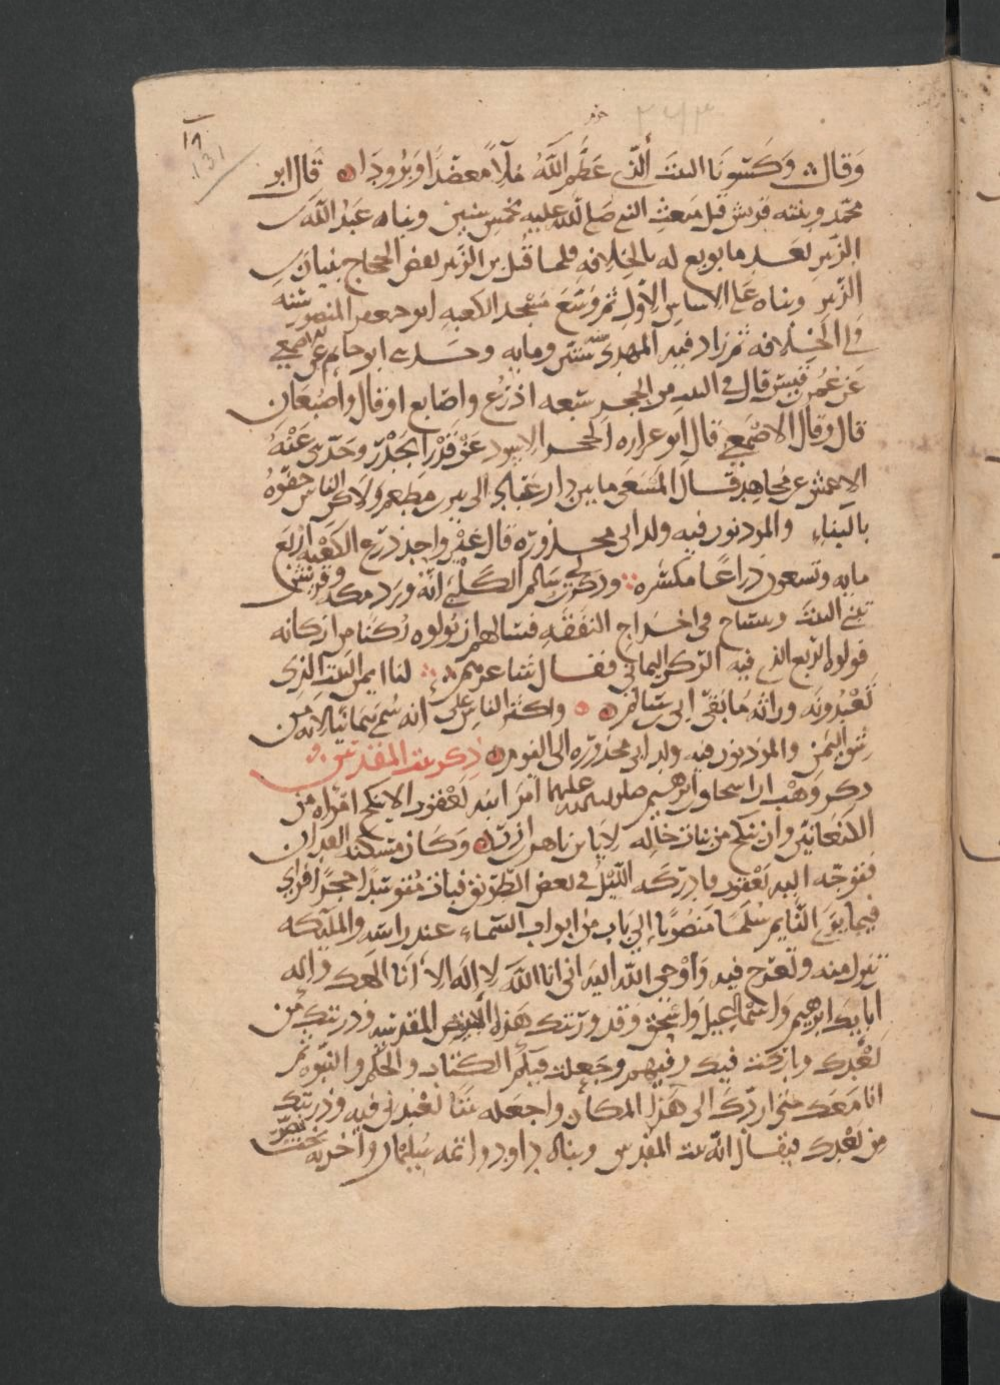 ١٩
131
٢٤٣
وقال ⁘ وكسونا البيت الذي عظم الله ملآ معضدا وبرودا ۞ قال ابو
محمد وبنته قريش قبل مبعث النبي صلى الله عليه بخمس سنين وبناه عبد الله بن
الزبير بعد ما بويع له بالخلافه فلما قتل بن الزبير نقض الحجاج بنيان بن
الزبير وبناه على الاساس الاول ثم وسع مسجد الكعبه ابو جعفر المنصور سنه
ولي الخلافه ثم زاد فيه المهدي سنه ستين ومايه وحدثنى ابو حاتم عن الاصمعي
عن عمر بن قيس قال في البيت من الحجر سبعه اذرع واصابع او قال واصبعان
قال وقال الاصمعي قال ابو عراره الحجر الاسود عن قدر الجدر وحدثنى عنه
الاعمش عن مجاهد قال المسعى ما بين دار عباد الى بير مطعم ولاكن الناس حفوه
بالبناء والموذنون فيه ولد ابى محذوره قال غير واحد ذرع الكعبه اربع
مايه وتسعون ذراعا مكسره ⁘ وذكر لي سالم الكلبي انه ورد مكه وقريش
تبني البيت وتشاح في اخراج النفقه فسالهم ان يولوه ركنا من اركانه
فولوه الربع الذي فيه الركن اليماني فقال شاعرهم ⁘ لنا ايمن البيت الذي
تعبدونه وراثه ما بقى ابي بن سالم ۞ ۞ واكثر الناس على انه سمي يمانيا لانه من
شق اليمن والموذنون فيه ولد ابي محذوره الى اليوم ۞ ذكر بيت المقدس
ذكر وهب ان اسحاق بن ابرهيم صلى الله عليهما امر ابنه يعقوب الا ينكح امراه من
الكنعانيين وان ينكح من بنات خاله لابان بن ناهر بن ازر ۞ وكان مسكنه الفدان
فتوجه اليه يعقوب فادركه الليل في بعض الطريق فبات متوسدا حجرا فراى
فيما يرى النايم سلما منصوبا الى باب من ابواب السماء عند راسه والمليكه
تنزل منه وتعرج فيه واوحى الله اليه انى انا الله لا اله الا انا الهك واله
ابايك ابرهيم واسماعيل واسحق وقد ورثتك هذه الارض المقدسه وذريتك من
بعدك وباركت فيك وفيهم وجعلت فيكم الكتاب والحكم والنبوه ثم
انا معك حتى اردك الى هذا المكان واجعله بيتا تعبدنى فيه وذريتك
من بعدك فيقال انه بيت المقدس وبناه داود واتمه سليمان واخربه بخت نصر